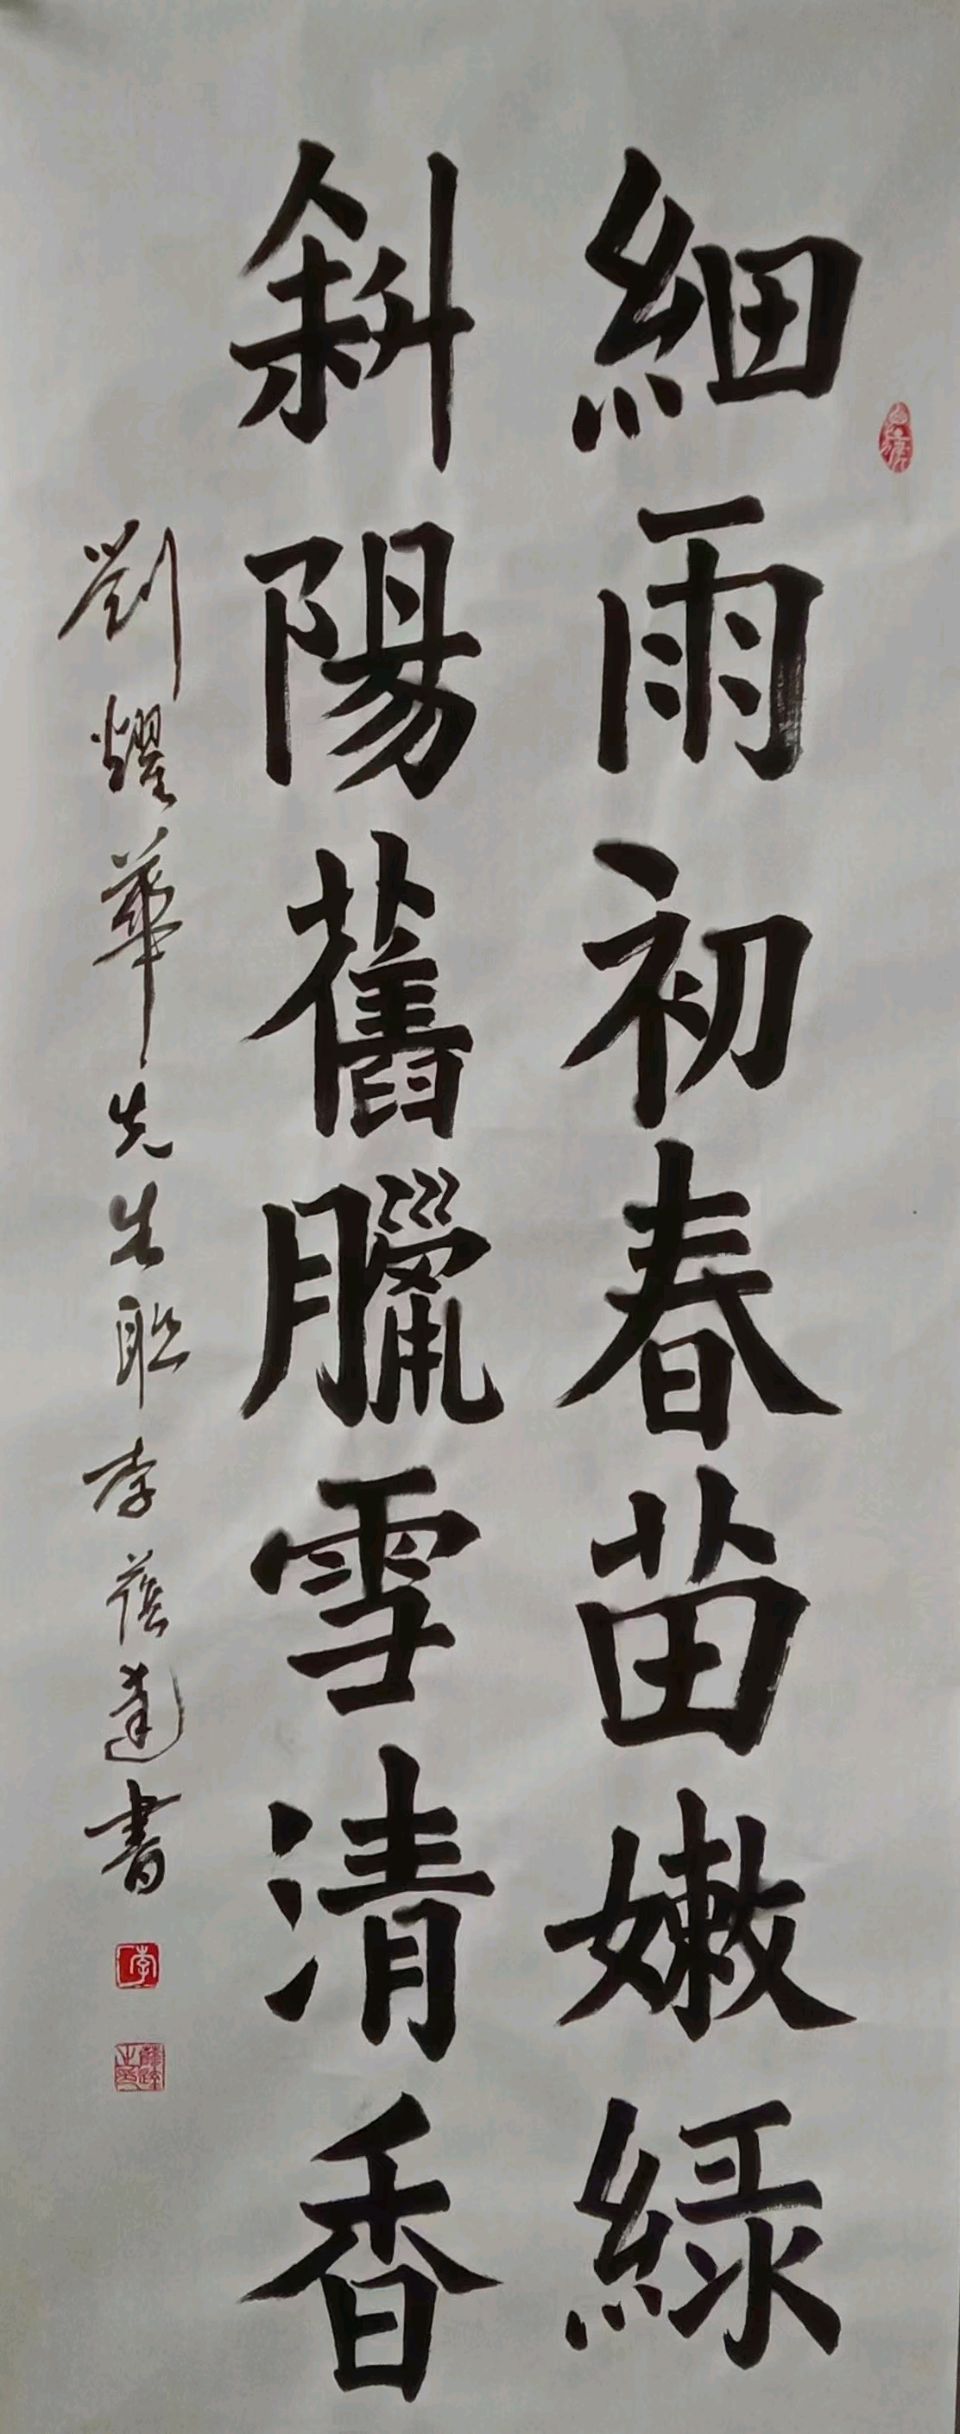 細雨初春苗嫩綠
斜陽舊臘雪清香
劉耀華先生联李蔭達書
李